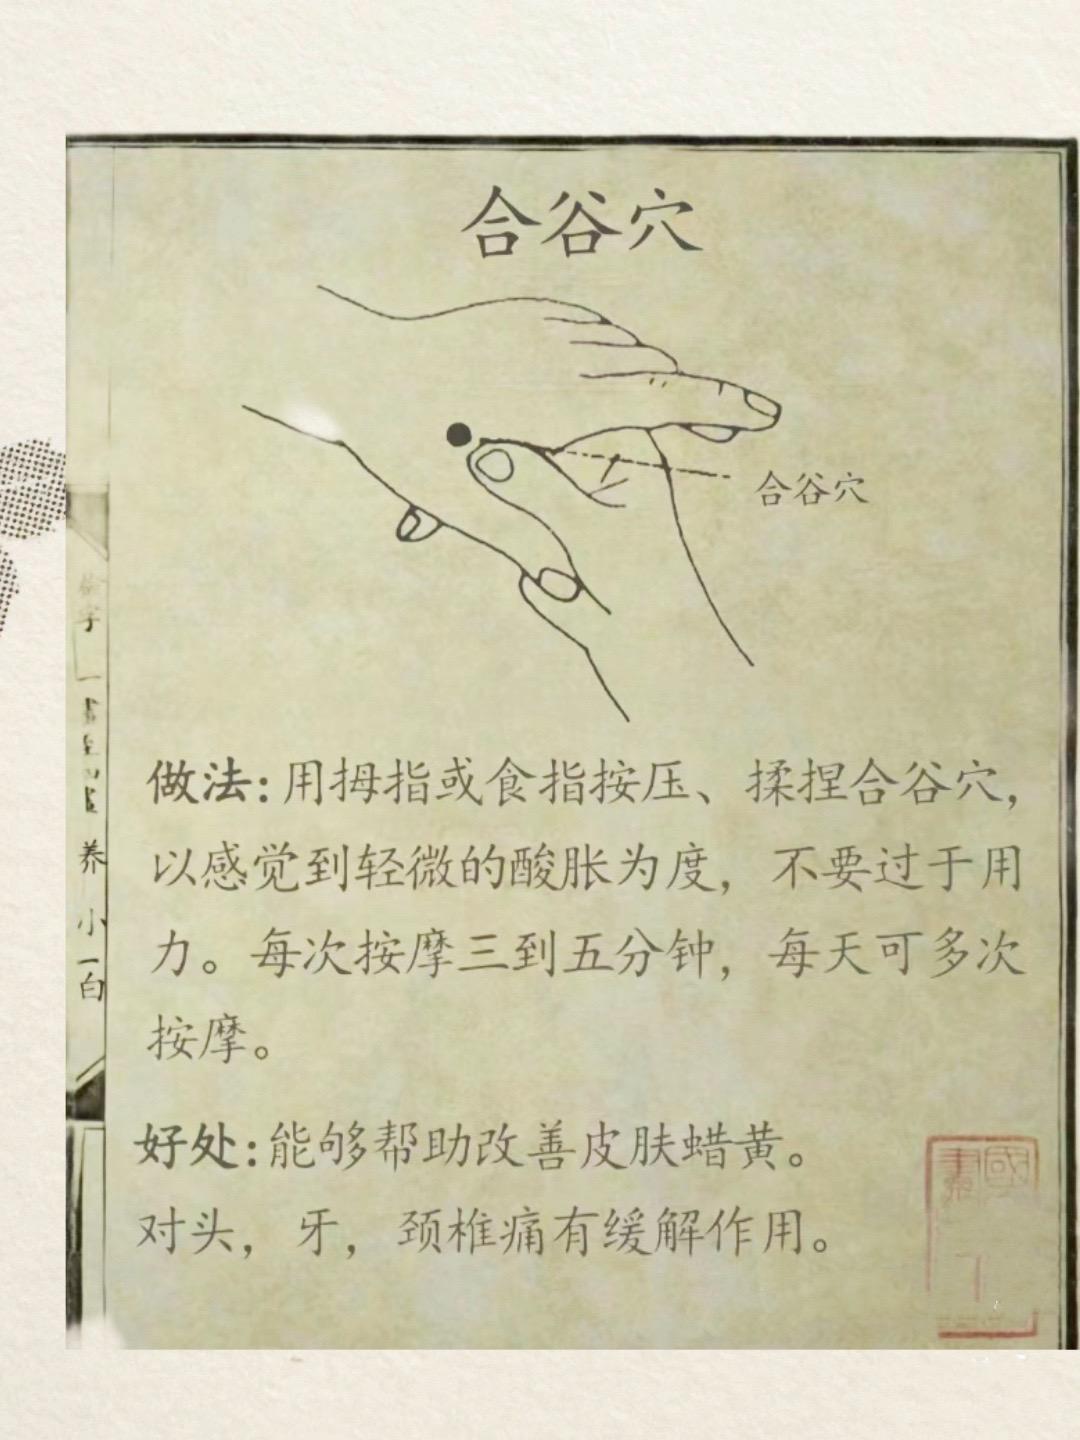 合谷穴
合谷穴
做法:用拇指或食指按压、揉捏合谷穴,
以感觉到轻微的酸胀为度,不要过于用
力。每次按摩三到五分钟,每天可多次
按摩。
好处:能够帮助改善皮肤蜡黄。
对头,牙,颈椎痛有缓解作用。
养
小
一
白
國